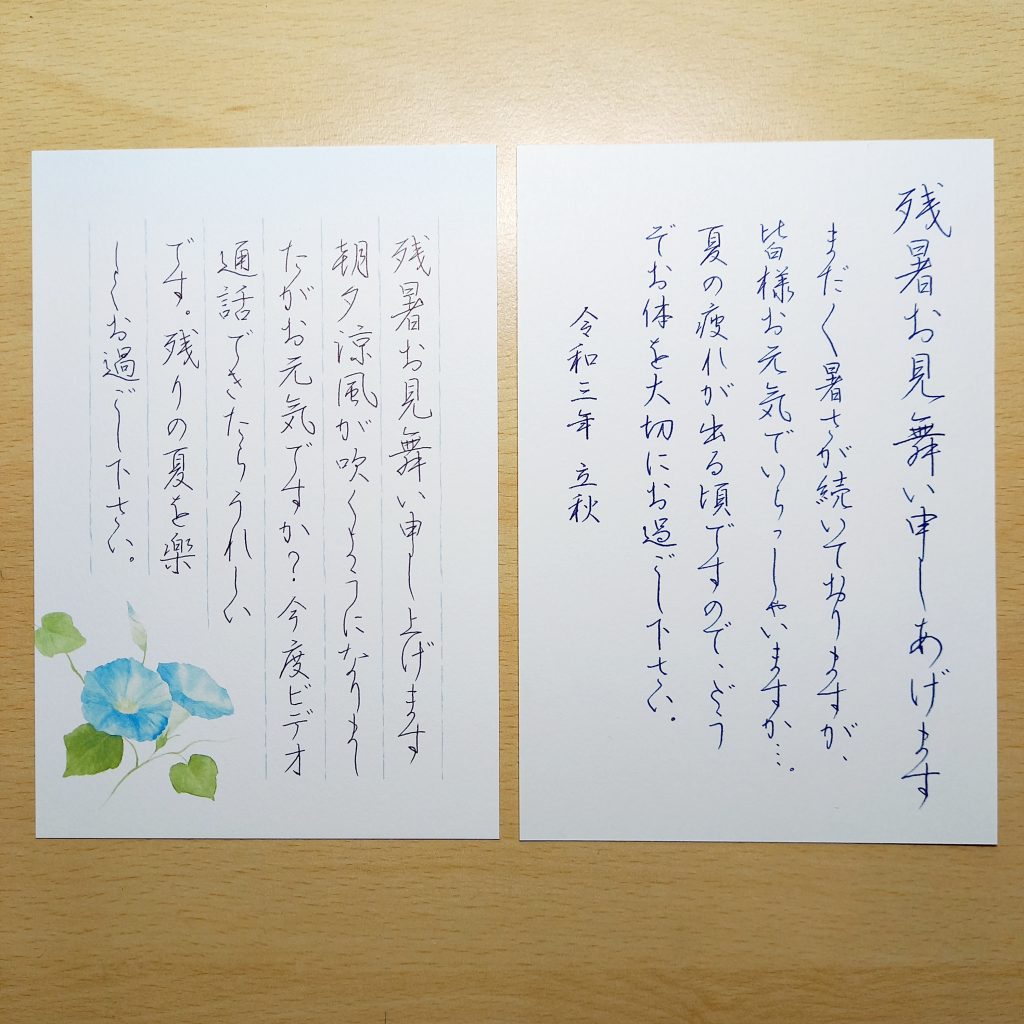 残暑お見舞い申しあげます
まだ〱暑さが続いておりますが、
皆様お元気でいらっしゃいますか…。
夏の疲れが出る頃ですので、どう
ぞお体を大切にお過ごし下さい。
令和三年 立秋
残暑お見舞い申し上げます
朝夕涼風が吹くようになりまし
たがお元気ですか?今度ビデオ
通話できたらうれしい
です。残りの夏を楽
しくお過ごし下さい。